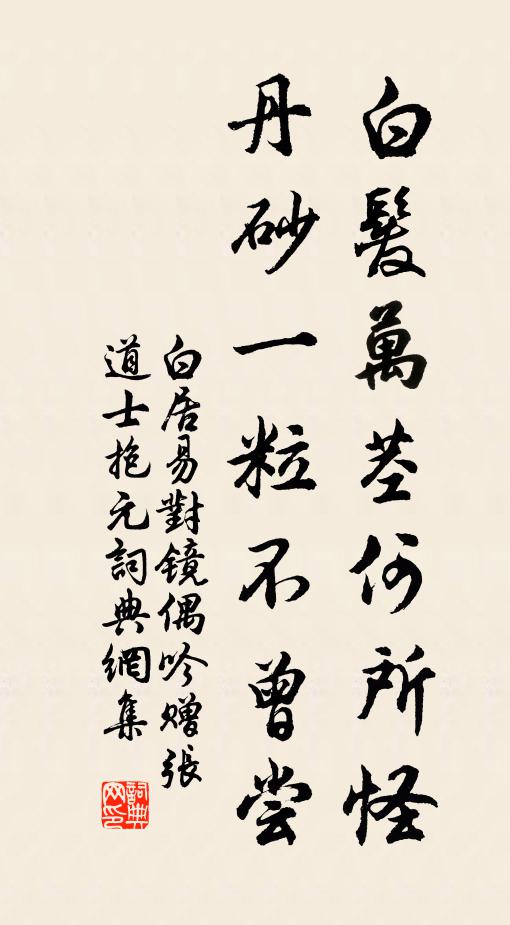 白髮萬茎何所怪
丹砂一粒不曾尝
白居易對镜偶吟赠張
道士抱元詞典網集
詞典
网印